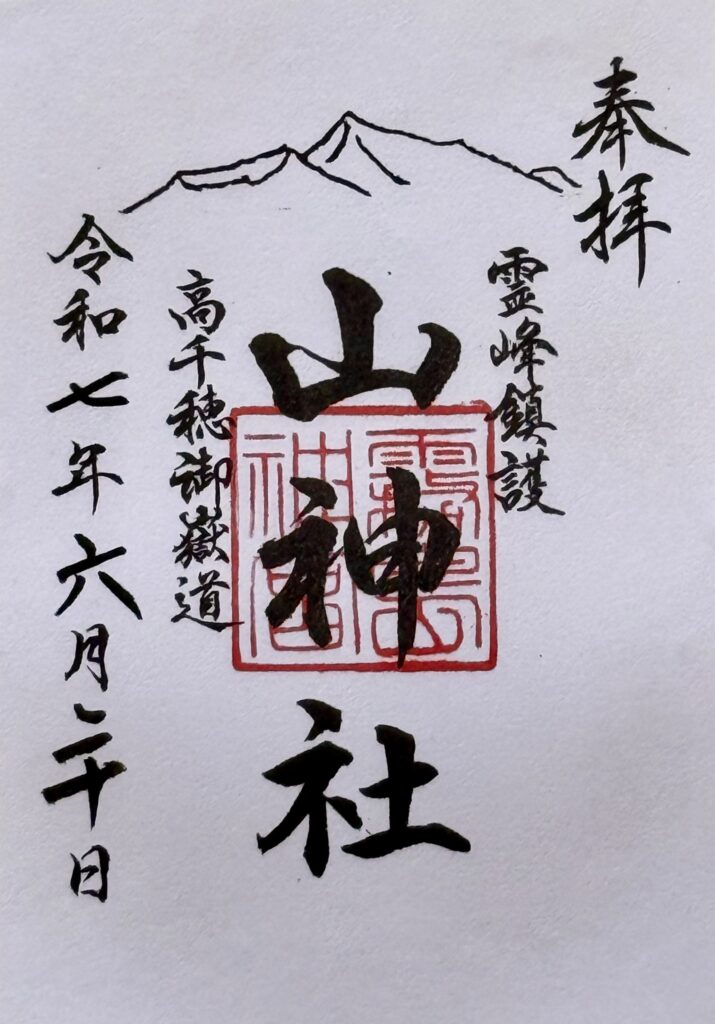 奉拝
霊峰鎮護
山神社
霧島神宮
高千穂御嶽道
令和七年六月二十日